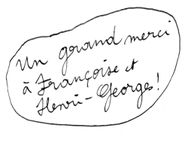 Un grand merci
à Françoise et
Henri-Georges!